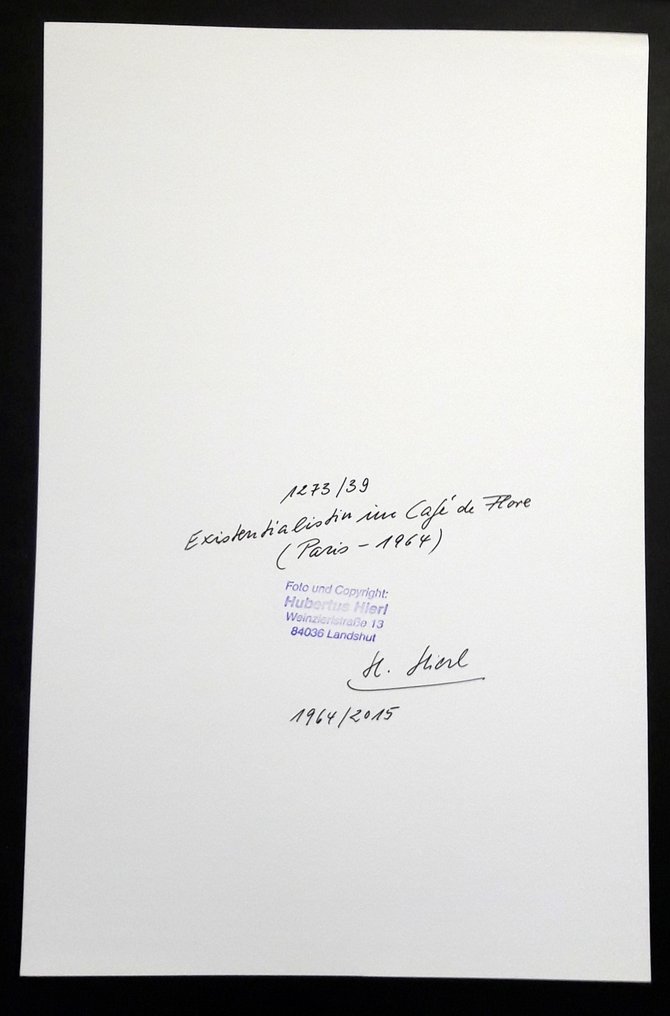 1273/39
Existentialistin im Café de Flore
(Paris - 1964)
Foto und Copyright:
Hubertus Hierl
Weinzierlstraße 13
84036 Landshut
H. Hierl
1964/2015